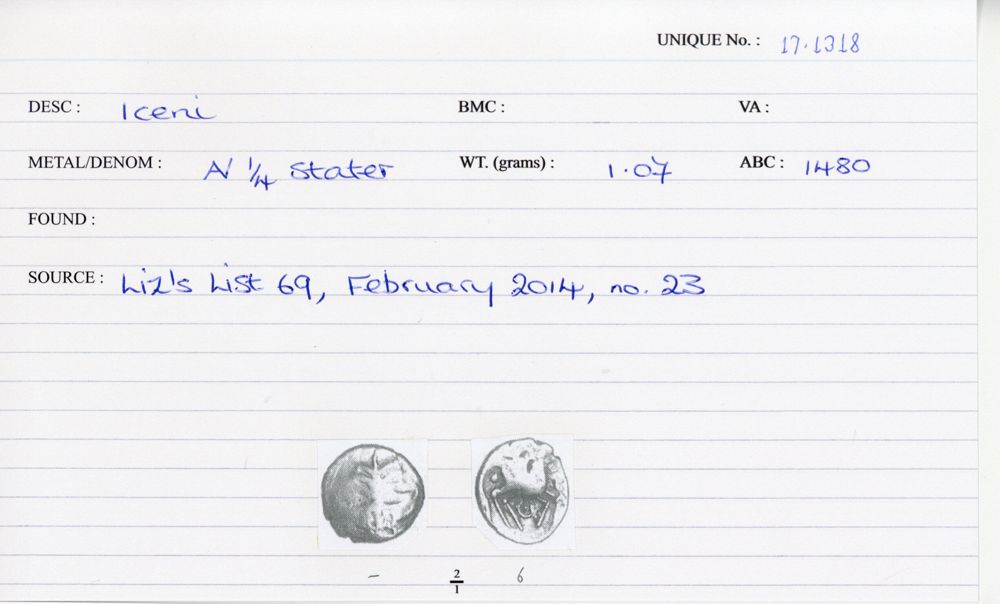 UNIQUE No. : 17.1318
DESC : Iceni BMC : VA :
METAL/DENOM : AV 1/4 Stater WT. (grams) : 1.07 ABC : 1480
FOUND :
SOURCE : Liz's List 69, February 2014, no. 23
- 2/1 6